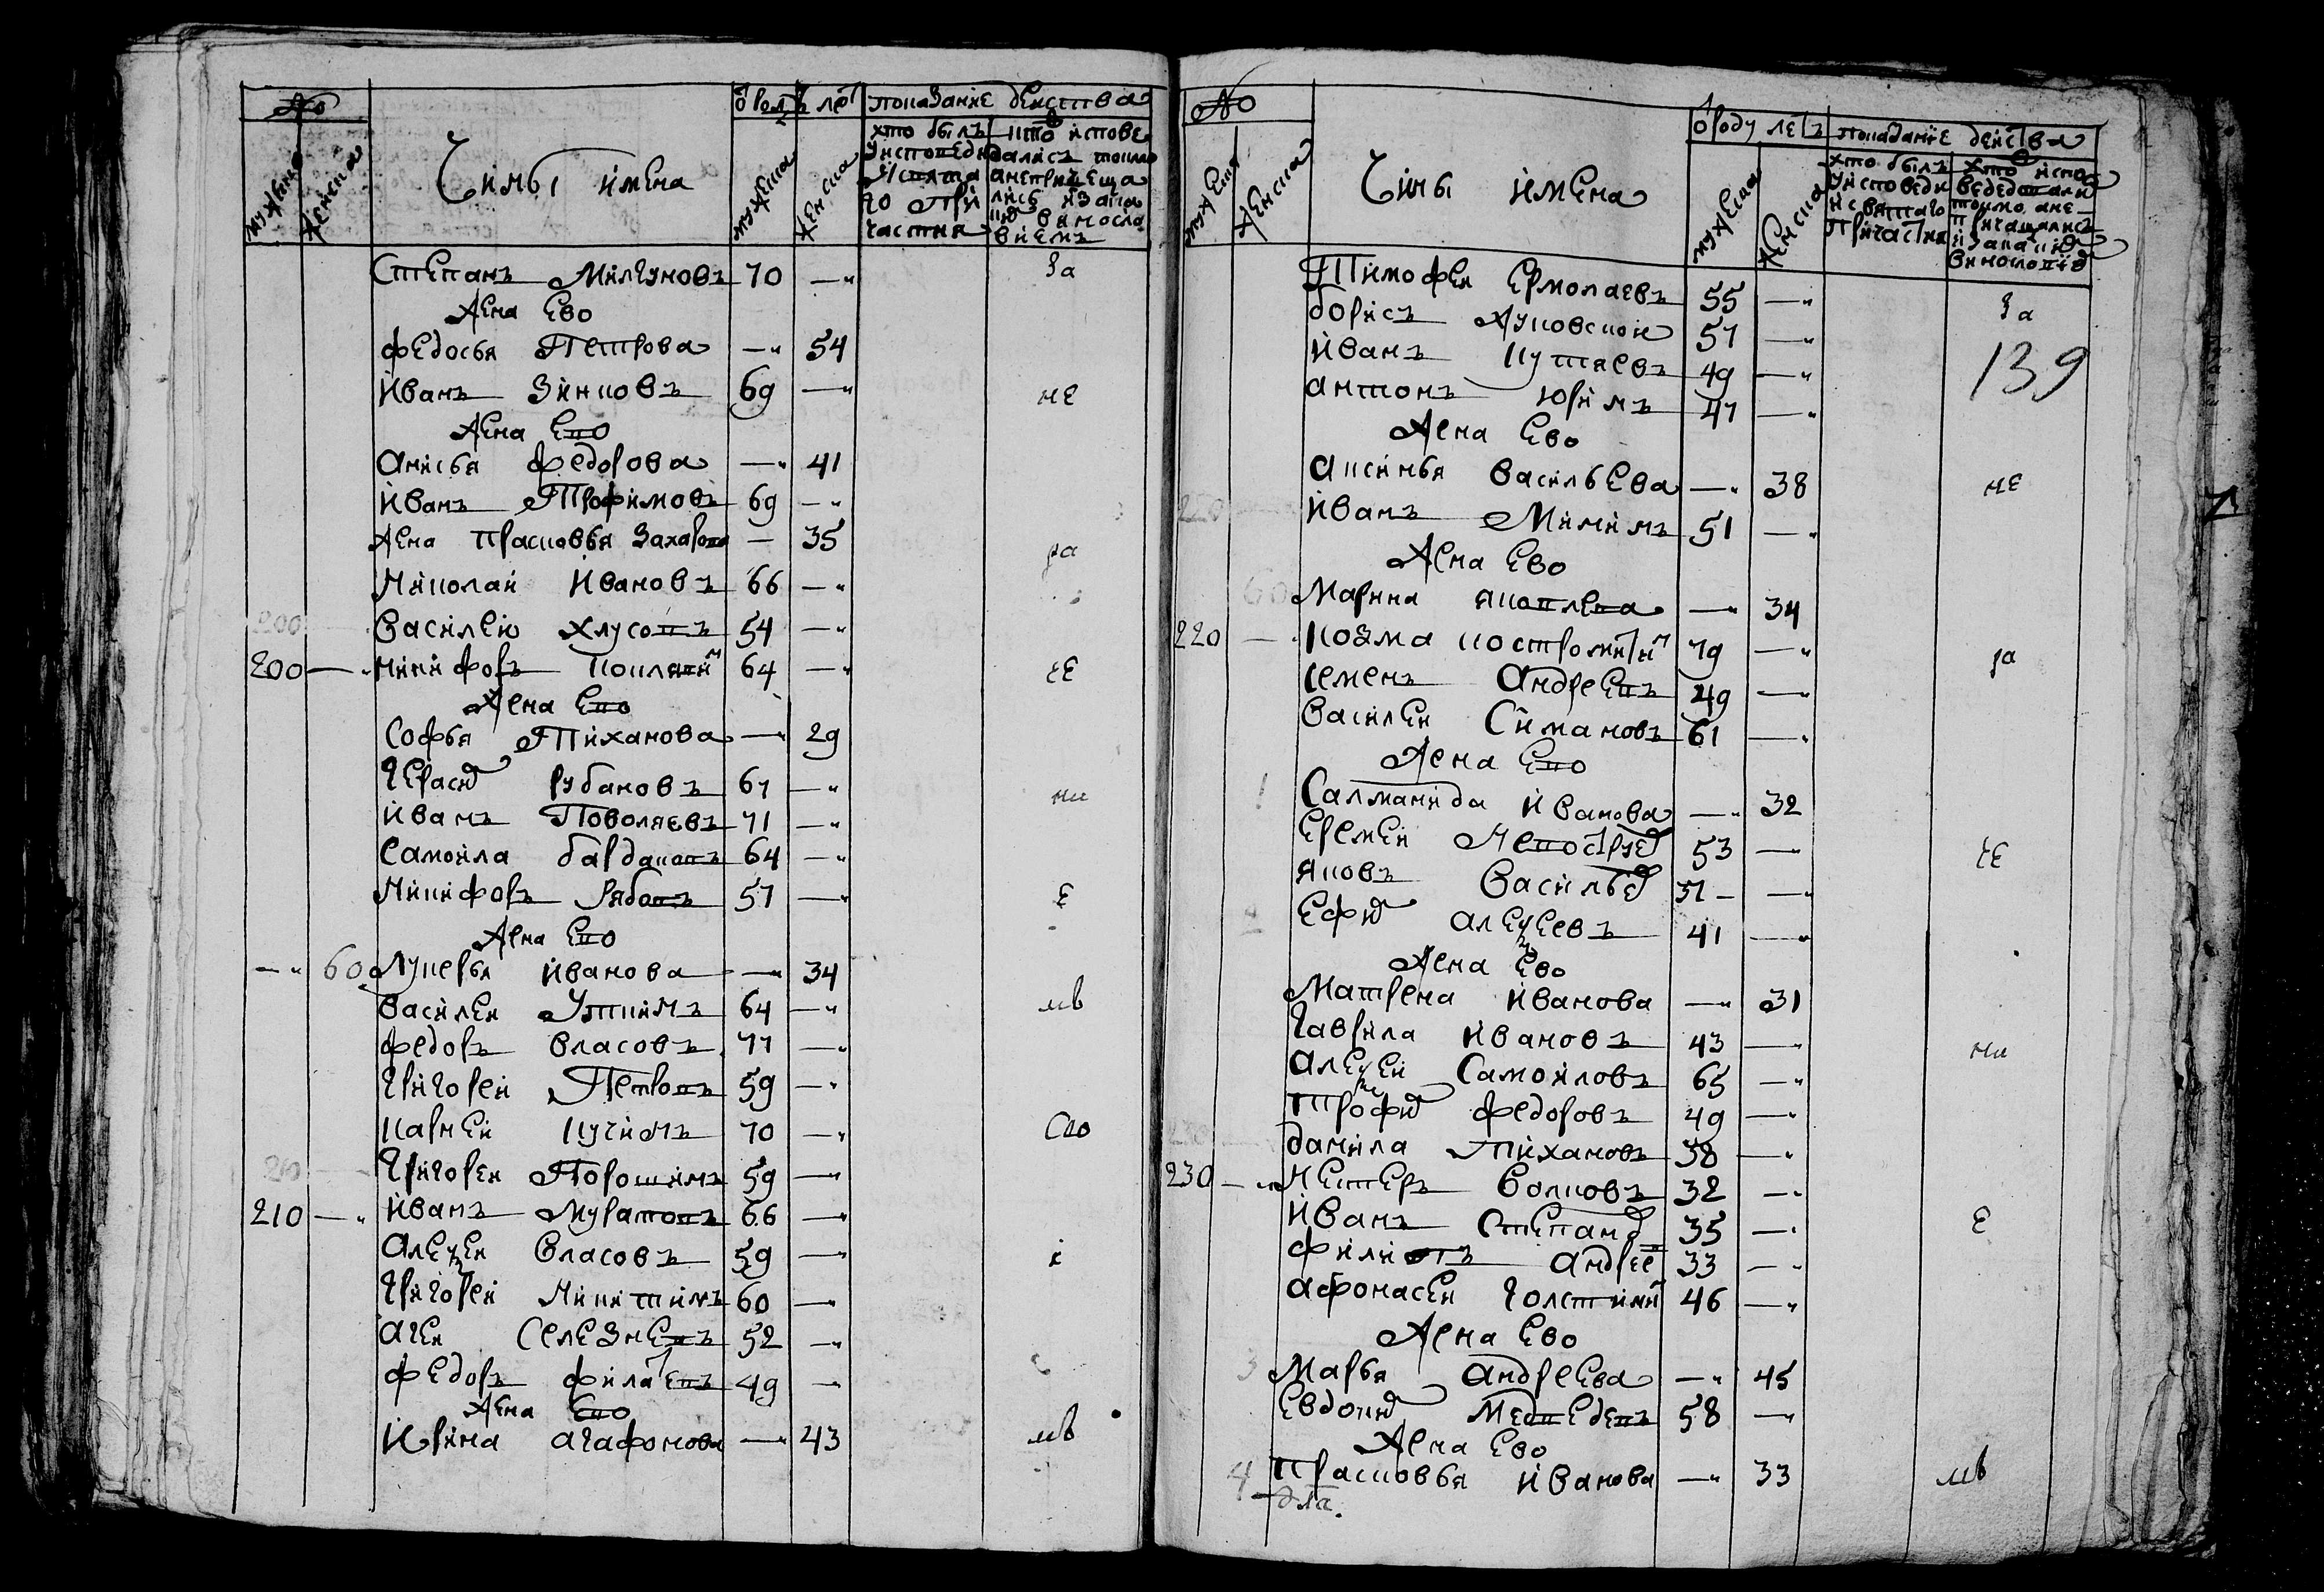 №
мужеска
женска
Чины имена
о роду лет
мужеска
женска
показание действа
хто былъ
у исповеди
и святаго
причастия
хто исповедались токмо
а не прищеща
лись и за каким
винословием
Степанъ Милгуновъ 70 —
Жена Ево
Федосья Петрова — 54
Иванъ Зинковъ 69 —
Жена Ево
Анисья Федорова — 41
Иванъ Трофимовъ 69 —
Жена Прасковья Захарова — 35
Николай Ивановъ 66 —
Василей Хлусовъ 54 —
200 — Никифоръ 64 —
Жена Ево
Софья Тиханова — 29
Герасим Рубановъ 67 —
Иванъ Поволяевъ 71 —
Самойла Бардаковъ 64 —
Никифоръ Рябовъ 57 —
Жена Ево
— 60 Лукерья Иванова — 34
Василей Уткинъ 64 —
Федоръ Власовъ 77 —
Григорей Петровъ 59 —
Карней Кучинъ 70 —
Григорей Порошинъ 59 —
210 — Иванъ Муратовъ 66 —
Алексей Власовъ 59 —
Григорей Никитинъ 60 —
Агей Селезневъ 52 —
Федоръ Филатевъ 49 —
Жена Ево
Ирина Агафонова — 43
за
не
ра
че
ни
е
мъ
сло
и
мъ
№
мужеска
женска
Чины имена
о роду летъ
мужеска
женска
показание действа
хто былъ
у исповеди
и святаго
причастия
хто испо
ведовали
токмо а не
причащались
и за каким
винословием
139
Тимофей Ермолаевъ 55 —
Борисъ Жуковской 57 —
Иванъ Кутяевъ 49 —
Антонъ Юринъ 47 —
Жена Ево
Аксинья Васильева — 38
Иванъ Мининъ 51 —
Жена Ево
Марина Яковлева — 34
220 — Козма Костромитин 79 —
Семенъ Андреевъ 49 —
Василей Симановъ 61 —
Жена Ево
1 Саломанида Иванова — 32
Еремей 53 —
Яковъ Васильев 37 —
2 Ефим Алексеевъ 41 —
Жена Ево
Матрена Иванова — 31
Гаврила Ивановъ 43 —
Алексей Самойловъ 65 —
Трофим Федоровъ 49 —
Данила Тихановъ 38 —
230 — Нестеръ Волковъ 32 —
Иванъ Степанов 35 —
Филипъ Андреев 33 —
Афонасей Голстинин 46 —
Жена Ево
3 Марья Андреева — 45
Евдоким Медведевъ 58 —
Жена Ево
4 Прасковья Иванова — 33
за
не
ра
че
ни
е
мъ